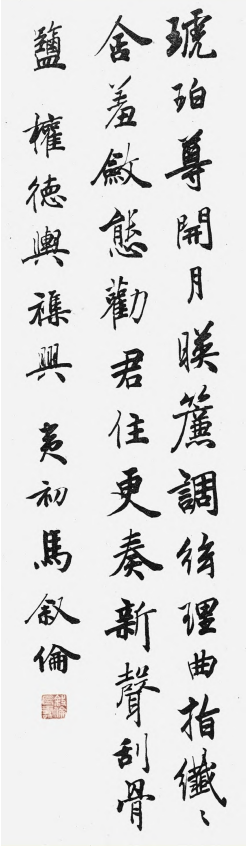 琥珀尊開月暎簾調絃理曲指纖〻
含羞斂態勸君住更奏新聲刮骨
鹽 權德輿襍興 夷初馬叙倫